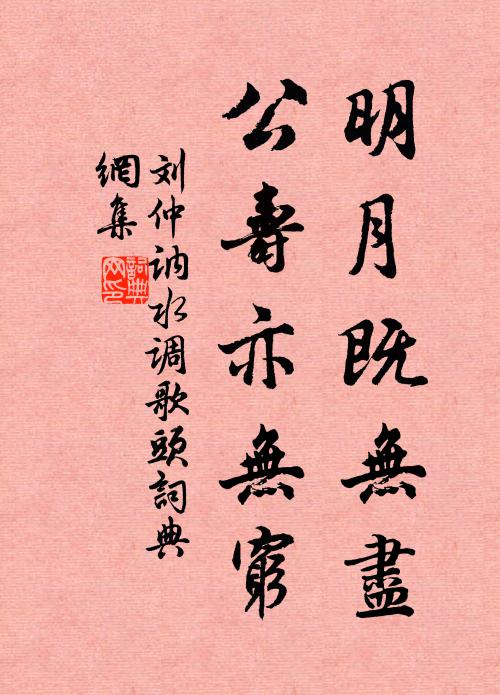 明月既無盡
公壽亦無窮
刘仲讷水调歌頭詞典
網集
詞典
网印